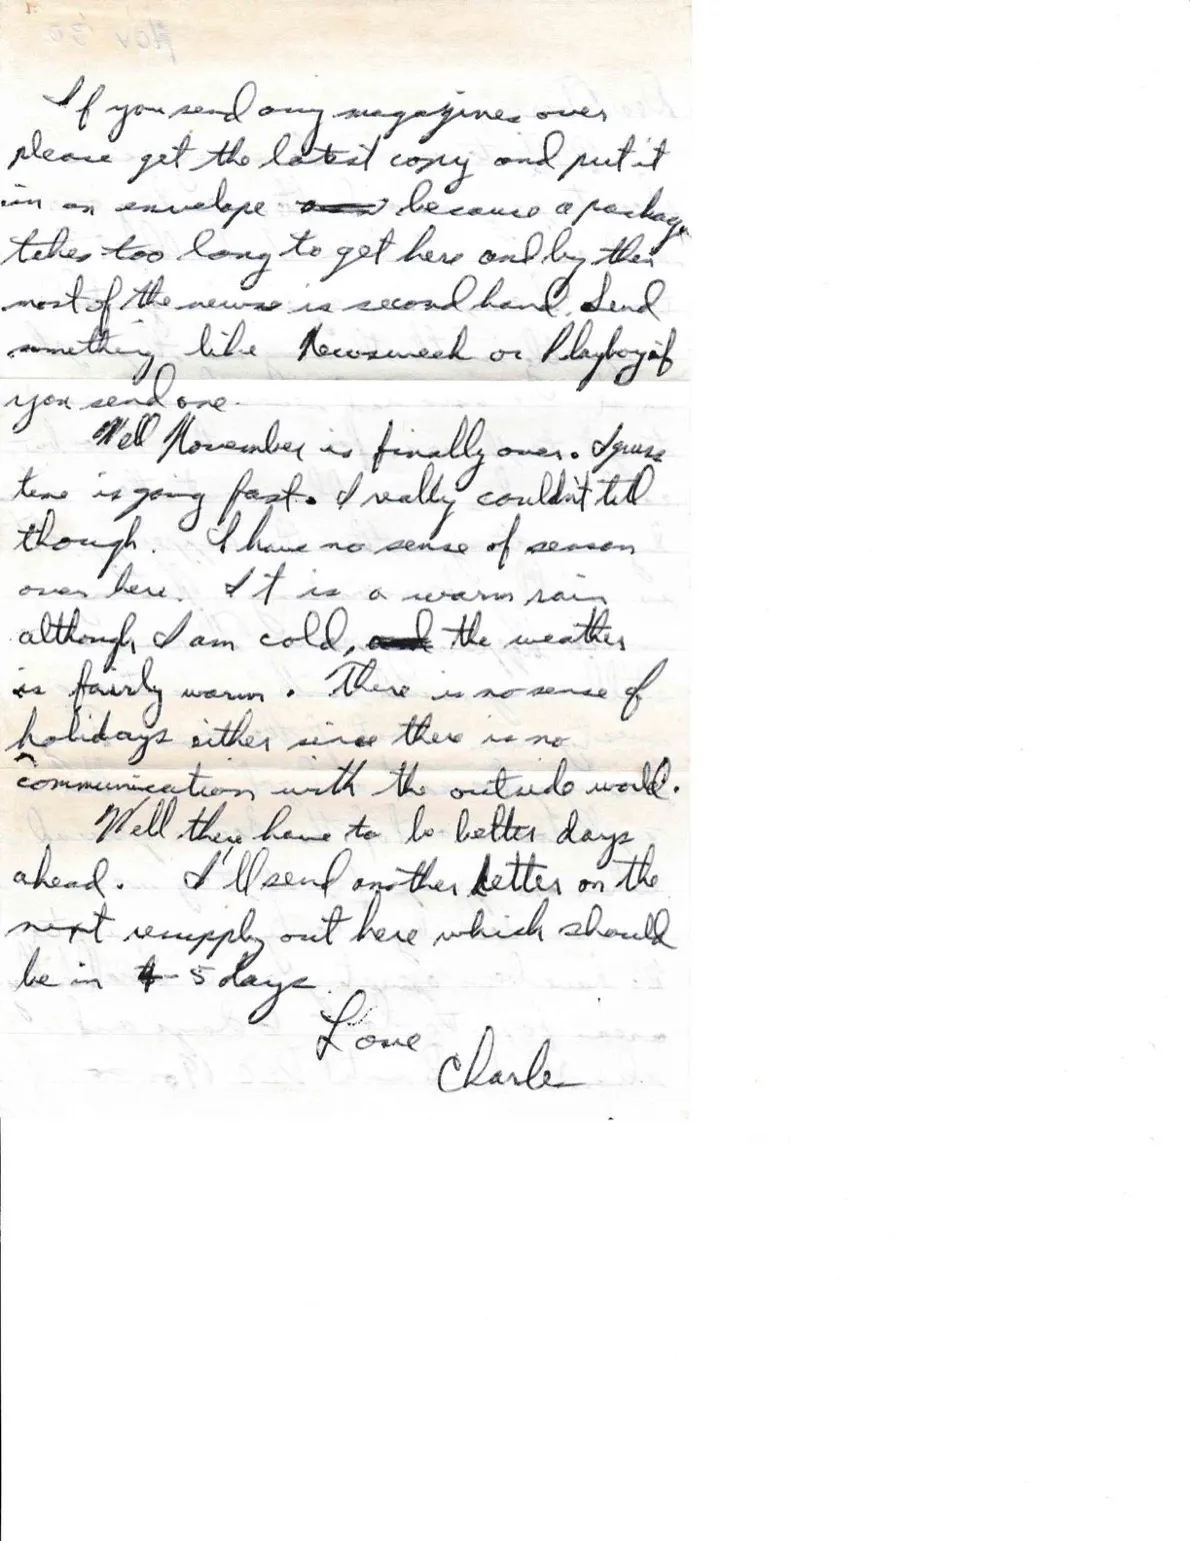 If you send any magazines over
please get the latest copy and put it
in an envelope because a package
takes too long to get here and by then
most of the news is second hand. Send
something like Newsweek or Playboy if
you send one.
Well November is finally over. I guess
time is going fast. I really couldn't tell
though. I have no sense of season
over here. It is a warm rain
although I am cold, the weather
is fairly warm. There is no sense of
holidays either since there is no
communication with the outside world.
Well there have to be better days
ahead. I'll send another letter on the
next resupply out here which should
be in 4-5 days.
Love
Charle